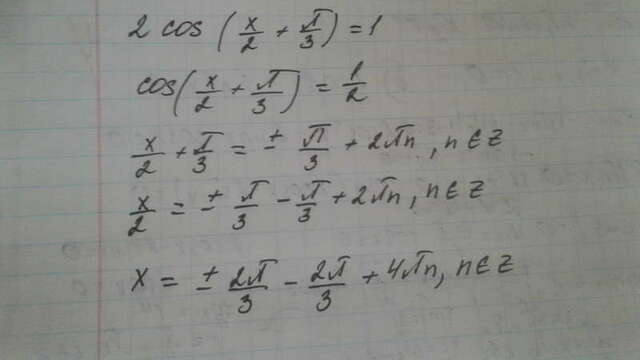 2 cos (x/2 + π/3) = 1
cos(x/2 + π/3) = 1/2
x/2 + π/3 = ± π/3 + 2πn, n ∈ Z
x/2 = ± π/3 − π/3 + 2πn, n ∈ Z
x = ± 2π/3 − 2π/3 + 4πn, n ∈ Z